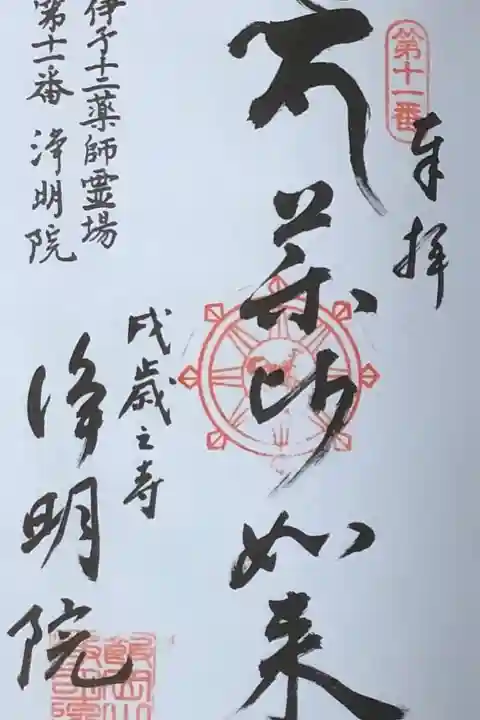 第十一番
奉拝
薬師如来
戌歳之寺
浄明院
伊予十二薬師霊場
第十一番 浄明院